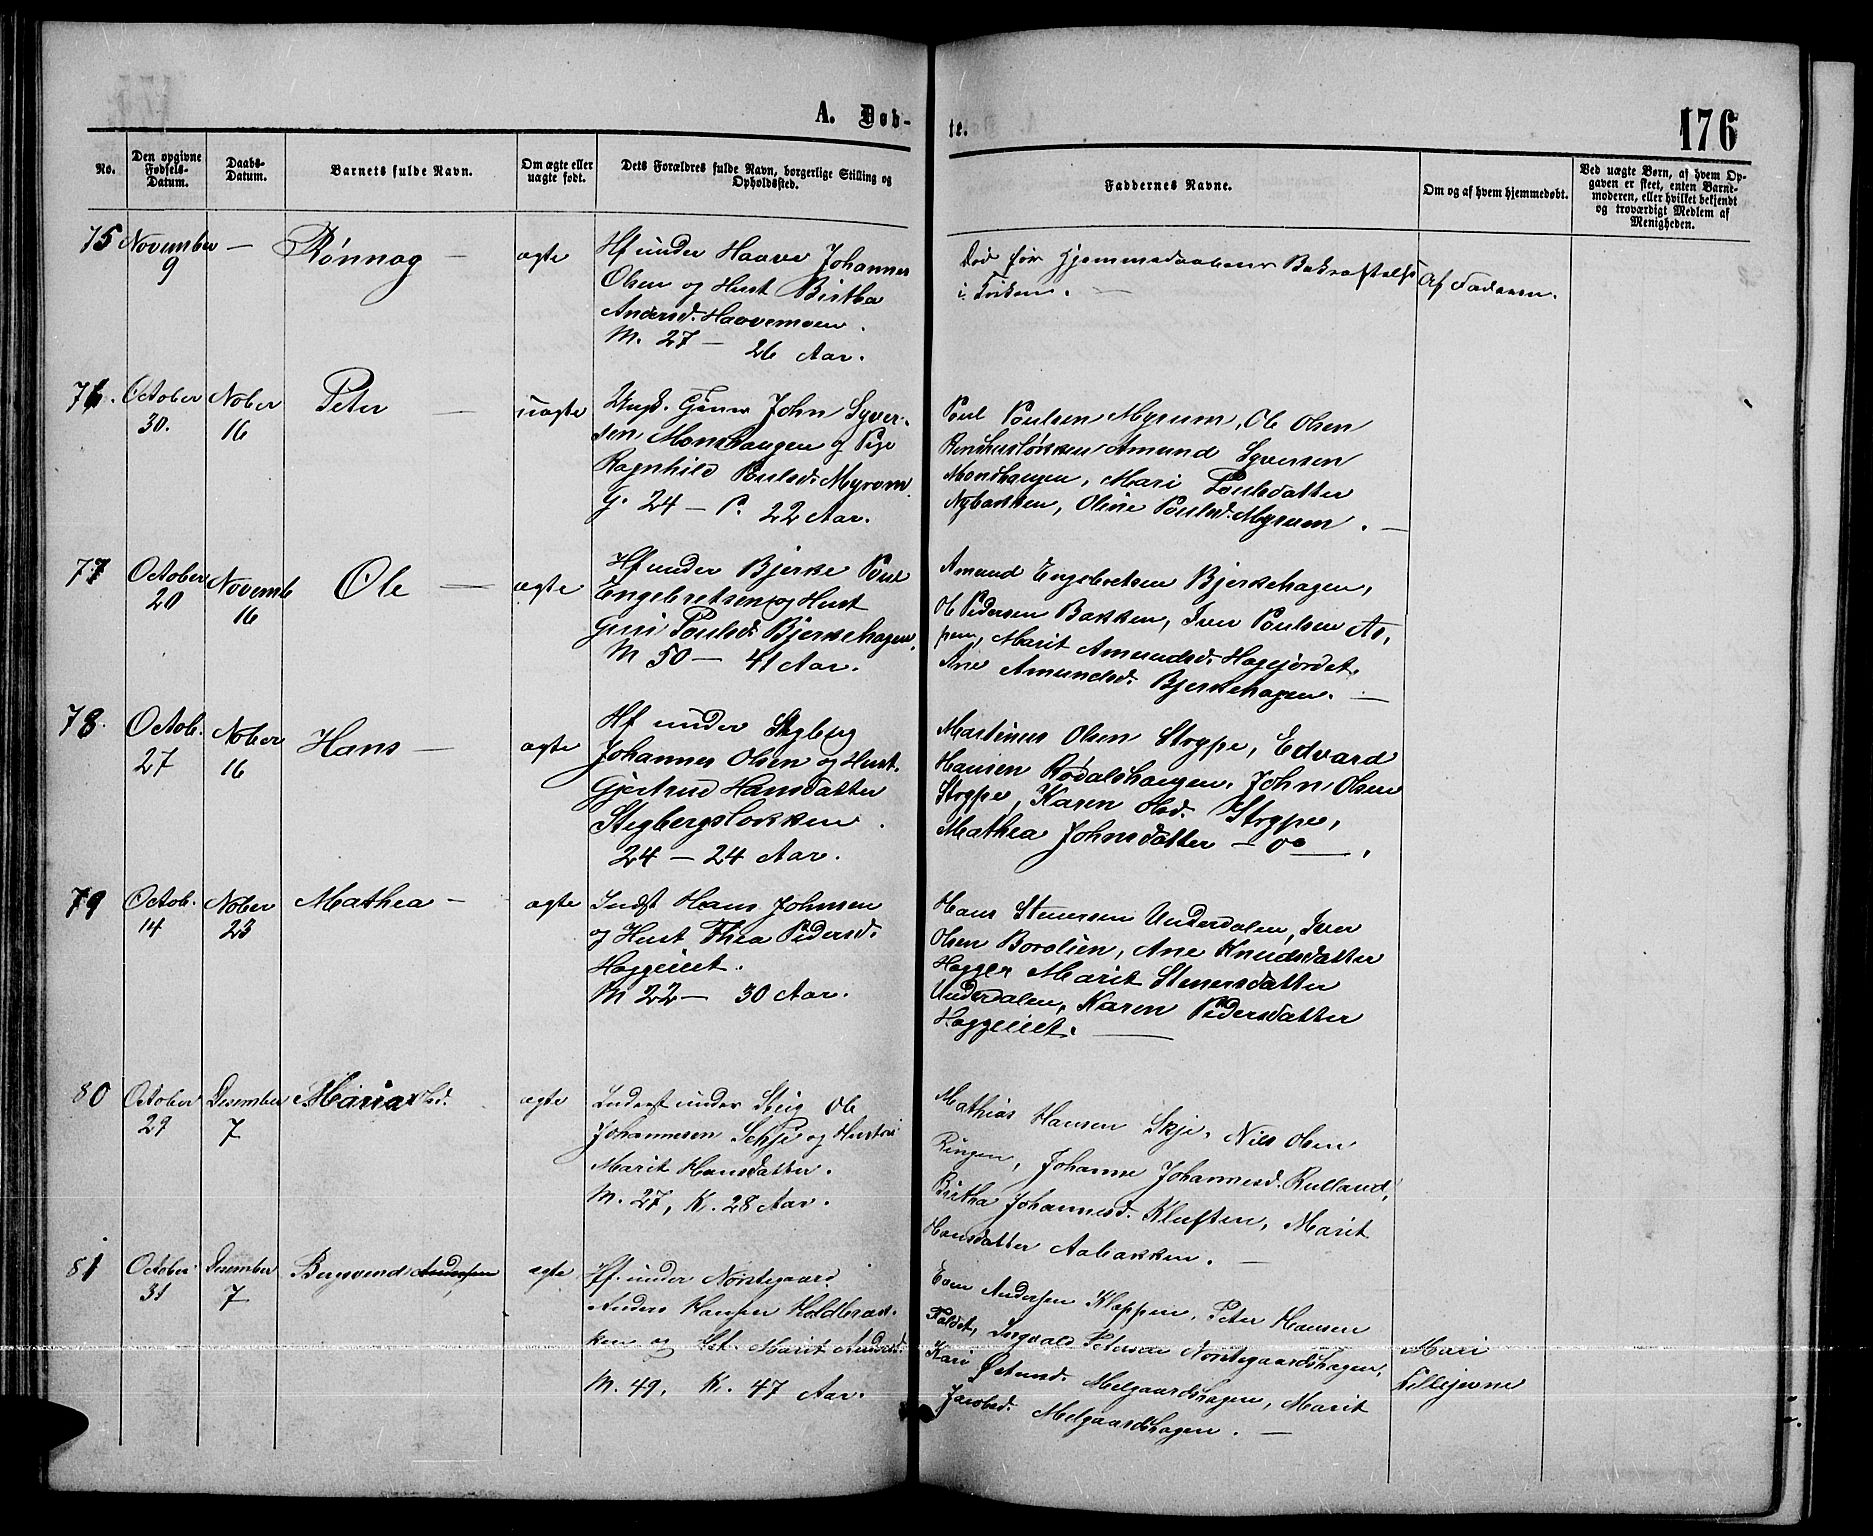 A. Døb-
te.
176
No.
Den opgivne Fødsels-Datum.
Daabs-Datum.
Barnets fulde Navn.
Om ægte eller uægte født.
Dets Forældres fulde Navn, borgerlige Stilling og Opholdssted.
Faddernes Navne.
Om og af hvem hjemmedøbt.
Ved uægte Børn, af hvem Opgaven er skeet, enten Barnemoderen, eller hvilket bekjendt og troværdigt Medlem af Menigheden.
75 November 9 — Rønnog — ægte
Hf under Haave Johannes
Olsen og Hust Birtha
Andersd. Haavemoen.
M. 27 — 26 Aar.
Død før Hjemmedaabens Bekræftelse
i Kirken. —
Af Faderen.
76. October 30. Nober 16 Peter — uægte
Ungk. Gaardm John Syver-
sen Monshaugen og Pige
Ragnhild Poulsd. Myrom.
G. 24 — P. 22 Aar.
Poul Poulsen Myrum, Ole Olsen
Amund Syversen
Monshaugen, Mari Poulsdatter
Nybakken, Oline Poulsd. Myrum. —
77 October 20 Novemb 16 Ole — ægte
Hf under Bjerke Poul
Engebretsen og Hust
Guri Poulsd. Bjerkehagen.
M 50 — 41 Aar.
Amund Engebretsen Bjerkehagen,
Ole Pedersen Bakken, Iver Poulsen As-
pen, Marit Amundsd. Hagejordet,
Ane Amundsd. Bjerkehagen. —
78. Octob. 27 Nober 16 Hans — ægte
Hf under Stigberg
Johannes Olsen og Hust.
Gjertrud Hansdatter
Stegbergsløkken.
24 — 24 Aar.
Martinus Olsen Strype, Edvard
Hansen Rødalshaugen, John Olsen
Strype, Karen Olsd. Strype,
Mathea Johnsdatter — do —.
79 Octob. 14 Nober 23 Mathea — ægte
Indst Hans Johnsen
og Hust Thea Pedersd.
Haggeiet.
M 22 — 30 Aar.
Hans Stenersen Underdalen, Iver
Olsen Borolien, Ane Knudsdatter
Hagger Marit Stenersdatter
Underdalen, Karen Pedersdatter
Haggeiet. —
80 October 29 Desember 7 Maria Olsd. ægte
Inderst under Steig Ole
Johannesen Schje og Hustru
Marit Hansdatter.
M. 27, K. 28 Aar.
Mathias Hansen Skje, Nils Olsen
Ringen, Johanne Johannesd. Rulland,
Birtha Johannesd. Kluften, Marit
Hansdatter Aabakken. —
81 October 31 Desember 7 Bergsvend Andersen ægte
Hf. under Nordregaard
Anders Hansen Holdbræk-
ken og Ht. Marit Andersd.
M. 49, K. 47 Aar.
Even Andersen Kloppen, Peter Hansen
Faldet, Ingvald Petersen Nordregaardshagen,
Kari Østensd. Melgaardshagen, Marit
Jacobsd. Melgaardshagen. —
Mari
Lillejevne